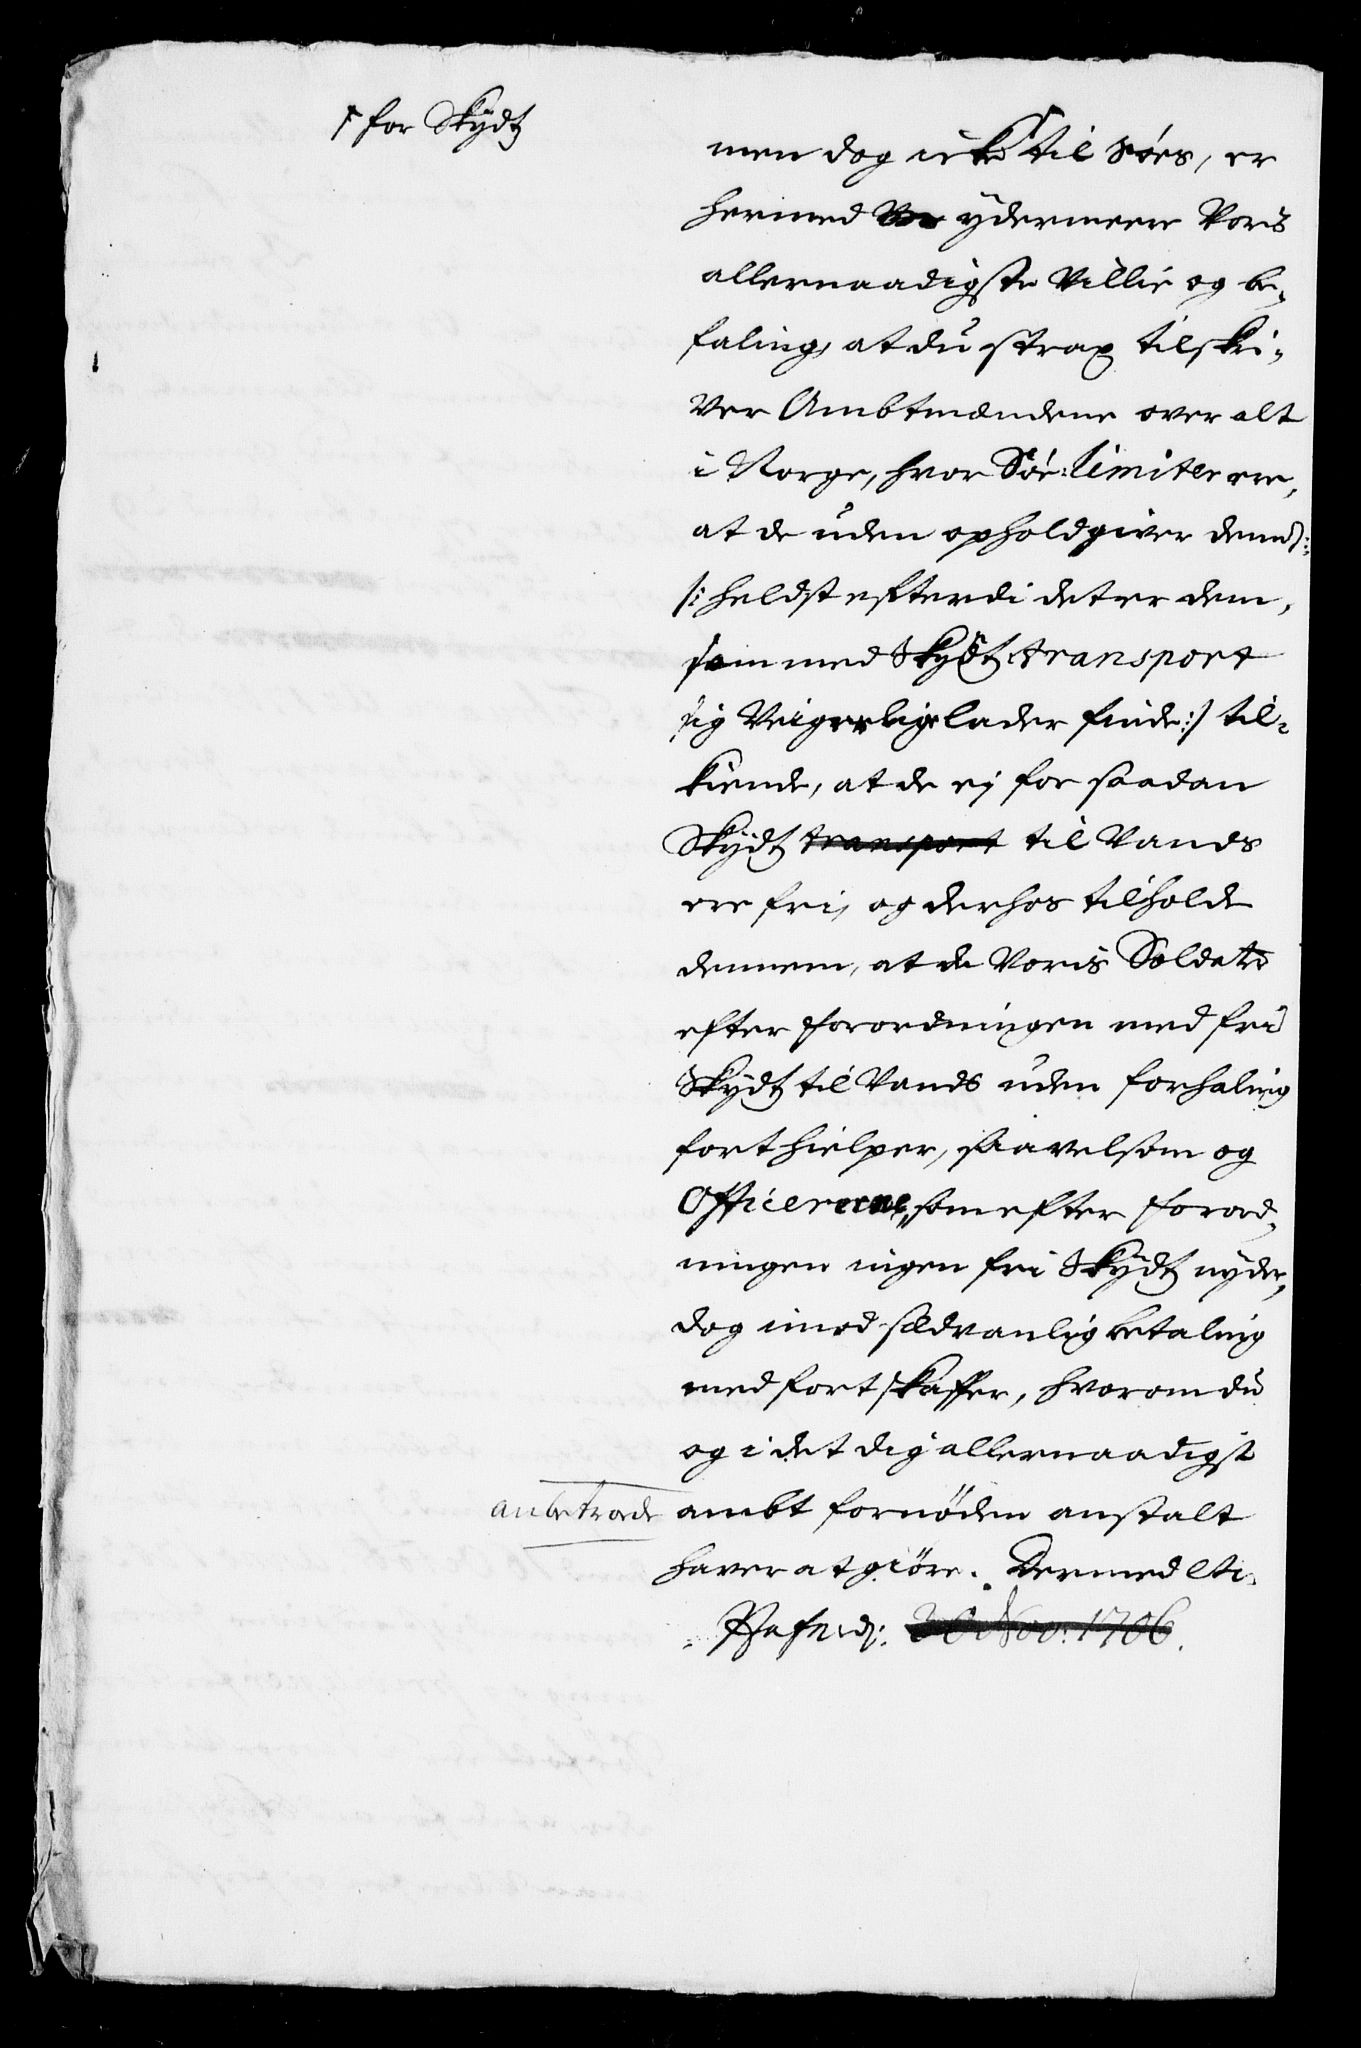 † for Skydtz
men dog icke † til Søes, er
hermed ydermeere Voris
allernaadigste Villie og be-
faling, at du strax tilskri-
ver Ambtmændene over alt
i Norge, hvor Søe-limiter ere,
at de uden ophold giver dennem
/: heldst efterdi det er dem,
som med Skydtz transport
sig Veigerlig lader finde :/ til-
kiende, at de ej for saadan
Skydtz transport til Vands
ere fri, og derhos tilholde
dennem, at de Voris Soldater
efter forordningen med fri
Skydtz til Vands uden forhaling
forthielper, saavelsom og
Officererne, som efter forord-
ningen ingen fri Skydtz nyder,
dog imod sædvanlig betaling
med fortskaffer, hvorom du
og i det dig allernaadigst
anbetroede ambt fornøden anstalt
haver at giøre. Dermed etc.
Hafn: d: 20 Nov: 1706.